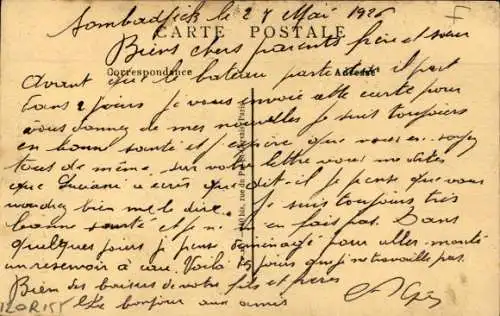 le 27 Mai 1926
CARTE POSTALE
Biens chers parents frère et sœur
Correspondance Adresse
Avant que le bateau parte il part
dans 2 jours je vous envoie cette carte pour
vous donner de mes nouvelles je suis toujours
en bonne santé et j'espère que vous en soyez
tous de même, sur votre lettre vous me dites
que Luciani a écris que dit-il je pense que vous
voudrez bien me le dire. Je suis toujours très
bonne santé et je ne en fais pas. Dans
quelques jours je pense pour aller monté
un reservoir à eau. Voilà 15 jours que je ne travaille pas.
Bien des baisers de votre fils et frères
Le bonjour aux amis
120R155